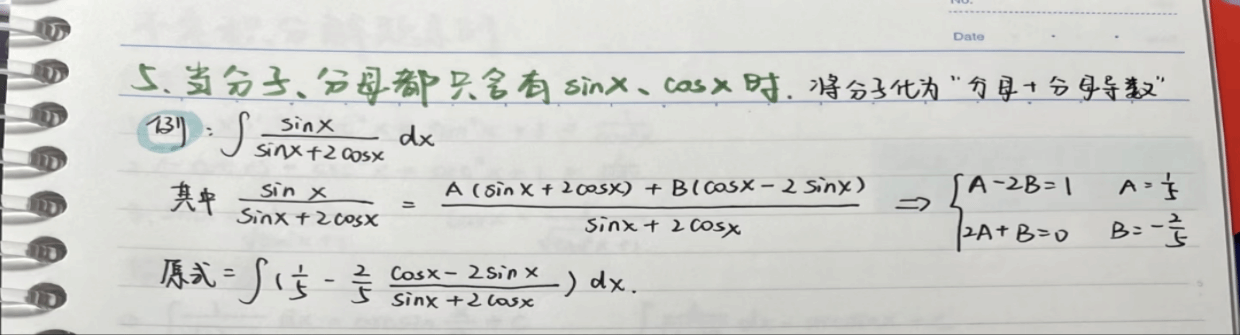 No.
Date
5. 当分子、分母都只含有 sinx、cosx 时. 将分子化为 "分母 + 分母导数"
例: ∫ sinx / (sinx+2cosx) dx
其中 sin x / (sinx+2cosx) = [A(sinx+2cosx) + B(cosx-2sinx)] / (sinx+2cosx) ⇒ { A-2B=1 2A+B=0 A=1/5 B=-2/5
原式 = ∫ (1/5 - 2/5 (cosx-2sinx)/(sinx+2cosx)) dx.